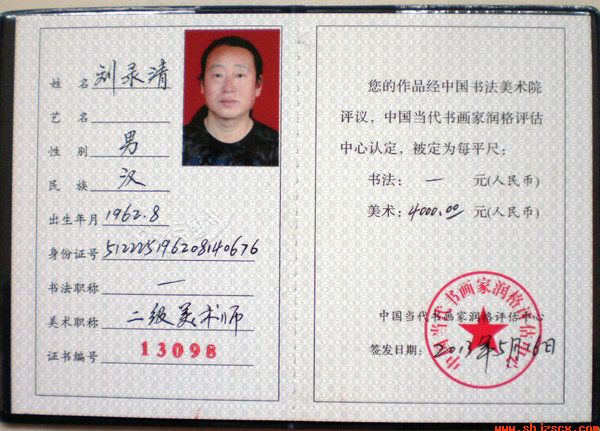 姓 名 刘录清
艺 名
性 别 男
民 族 汉
出生年月 1962.8
身份证号 512225196208140676
书法职称 一
美术职称 二级美术师
证书编号 13098
您的作品经中国书法美术院
评议，中国当代书画家润格评估
中心认定，被定为每平尺：
书法： 一 元(人民币)
美术： 4000.00 元(人民币)
中国当代书画家润格评估中心
中国当代书画家润格评估中心
签发日期： 2013年5月16日
www.shjzscx.com